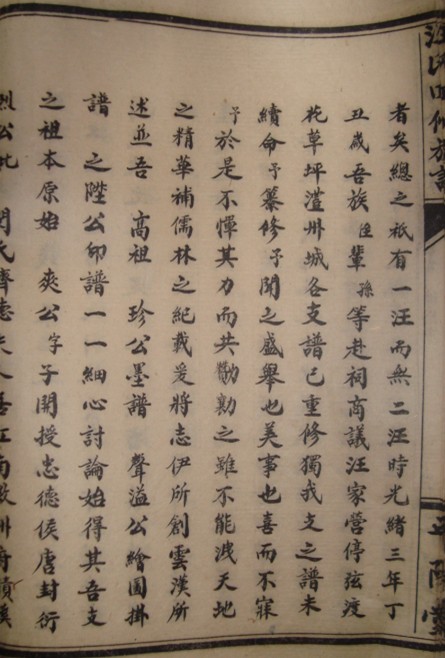 者矣總之祇有一汪而無二汪時光緒三年丁
丑歲吾族侄輩孫等赴祠商議汪家營停弦渡
花草坪澧州城各支譜已重修獨我支之譜未
續命予纂修予聞之盛舉也美事也喜而不寐
予於是不憚其力而共勷勷之雖不能洩天地
之精華補儒林之紀載爰將志伊所創雲漢所
述並吾 高祖 珍公墨譜 聲溢公繪圖掛
譜 之陛公印譜一一細心討論始得其吾支
之祖本原始 爽公字子開授忠德侯唐封衍